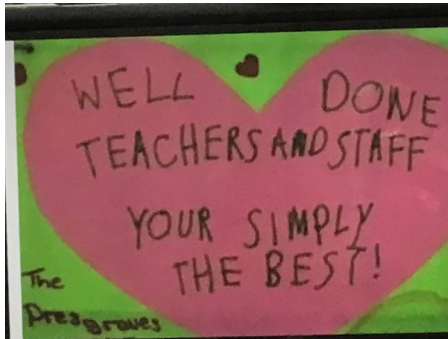 WELL DONE
TEACHERS AND STAFF
YOUR SIMPLY
THE BEST!
The
Dreagroves